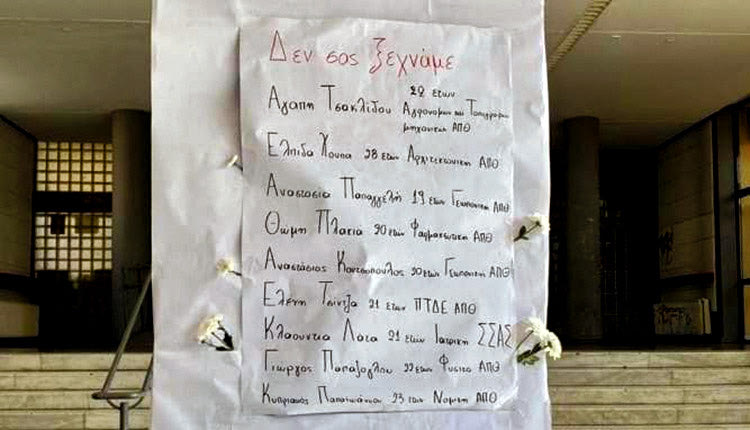 Δεν σας ξεχνάμε
22 ετων
Αγαπη Τσακλίδου Αγρονομων και Τοπογραφων
μηχανικων ΑΠΘ
Ελπιδα Χουπα 28 ετων Αρχιτεκτονικη ΑΠΘ
Αναστασια Παπαγγελή 19 ετων Γεωπονικη ΑΠΘ
Θωμη Πλακιά 20 ετων Φαρμακευτικη ΑΠΘ
Αναστάσιος Κουτσοπουλος 20 ετων Γεωπονικη ΑΠΘ
Ελενη Τσιντζα 21 ετων ΠΤΔΕ ΑΠΘ
Κλαουντια Λατα 21 ετων Ιατρικη ΣΣΑΣ
Γιώργος Παπάζογλου 22 ετων Φυσικο ΑΠΘ
Κυπριανός Παπαϊωάννου 23 ετων Νομικη ΑΠΘ